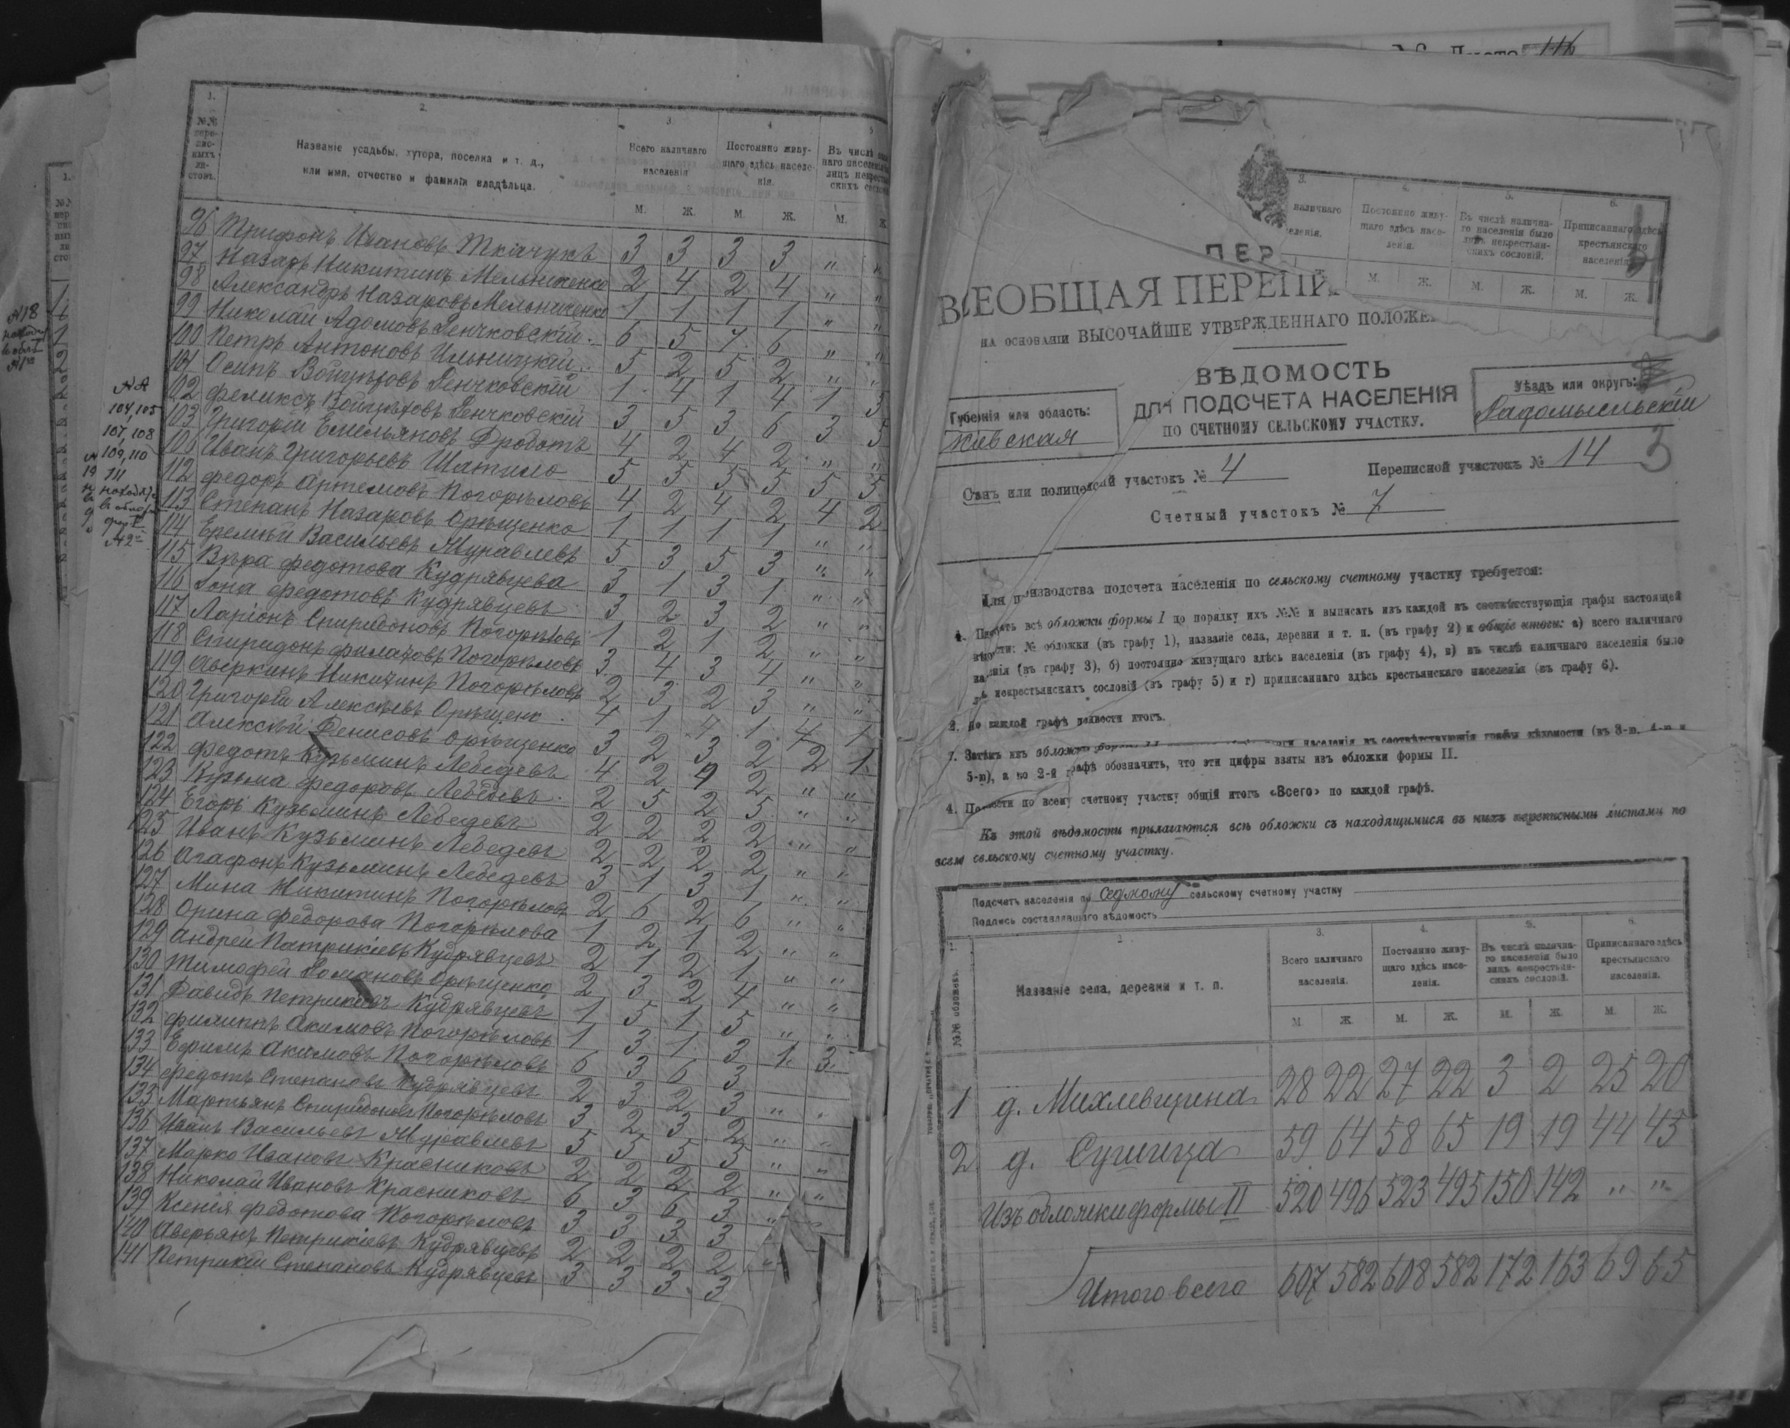 1. 2. 3. 4. 5
№№ пере-
пис-
ныхъ
ли-
стовъ.
Названіе усадьбы, хутора, поселка и т. д.,
или имя, отчество и фамилія владѣльца.
Всего наличнаго
населенія
Постоянно живу-
щаго здѣсь населе-
нія.
Въ числѣ
наго населенія
лицъ некрестьян-
скихъ
М. Ж. М. Ж. М.
96 Трифонъ Ивановъ Ткачукъ 3 3 3 3 " "
97 Назаръ Никитинъ Мельниченко 2 4 2 4 " "
98 Александръ Назаровъ Мельниченко 1 1 1 1 " "
99 Николай Адамовъ Ленчковскій 6 5 7 6 " "
100 Петръ Антоновъ Ильницкій 5 2 5 2 " "
101 Осипъ Войцѣховъ Ленчковскій 1 4 1 4 1 3
102 Феликсъ Войцѣховъ Ленчковскій 3 5 3 6 3 5
103 Григорій Емельяновъ Дроботъ 4 2 4 2 " "
106 Иванъ Григорьевъ Шатило 5 5 5 5 5 5
112 Федоръ Артемовъ Погорѣловъ 4 2 4 2 4 2
113 Степанъ Назаровъ Орѣщенко 1 1 1 1 " "
114 Еремѣй Васильевъ Журавлевъ 5 3 5 3 " "
115 Вѣра Федотова Кудрявцева 3 1 3 1 " "
116 Іона Федотовъ Кудрявцевъ 3 2 3 2 " "
117 Ларіонъ Спиридоновъ Погорѣловъ 1 2 1 2 " "
118 Спиридонъ Филатовъ Погорѣловъ 3 4 3 4 " "
119 Аверкинъ Никитинъ Погорѣловъ 2 3 2 3 " "
120 Григорій Алексѣевъ Орѣщенко 4 1 4 1 4 1
121 Алексѣй Денисовъ Орѣщенко 3 2 3 2 2 1
122 Федотъ Кузьминъ Лебедевъ 4 2 4 2 " "
123 Кузьма Федоровъ Лебедевъ 2 5 2 5 " "
124 Егоръ Кузьминъ Лебедевъ 2 2 2 2 " "
125 Иванъ Кузьминъ Лебедевъ 2 2 2 2 " "
126 Агафонъ Кузьминъ Лебедевъ 3 1 3 1 " "
127 Мина Никитинъ Погорѣловъ 2 6 2 6 " "
128 Орина Федорова Погорѣлова 1 2 1 2 " "
129 Андрей Патрикіевъ Кудрявцевъ 2 1 2 1 " "
130 Тимофей Романовъ Орѣщенко 2 3 2 4 " "
131 Давидъ Петрикіевъ Кудрявцевъ 1 5 1 5 " "
132 Филипъ Акимовъ Погорѣловъ 1 3 1 3 1 3
133 Ефимъ Акимовъ Погорѣловъ 6 3 6 3
134 Федотъ Степановъ Кудрявцевъ 2 3 2 3 " "
135 Мартьянъ Спиридоновъ Погорѣловъ 3 2 3 2 " "
136 Иванъ Васильевъ Журавлевъ 5 5 5 5 " "
137 Марко Ивановъ Красниковъ 2 2 2 2 " "
138 Николай Ивановъ Красниковъ 6 3 6 3 "
139 Ксенія Федотова Погорѣловъ 3 3 3 3
140 Аверьянъ Петрикіевъ Кудрявцевъ 2 2 2 2 "
141 Петрикій Степановъ Кудрявцевъ 3 3 3 3
№18
№№
104, 105
107, 108
109, 110
111
№2
116
ПЕР
ВСЕОБЩАЯ ПЕРЕПИ
НА ОСНОВАНІИ ВЫСОЧАЙШЕ УТВЕРЖДЕННАГО ПОЛОЖЕ
3. 4. 5. 6.
наличнаго
селенія.
Постоянно живу-
щаго здѣсь насе-
ленія.
Въ числѣ налична-
го населенія было
лицъ некрестьян-
скихъ сословій.
Приписаннаго здѣсь
крестьянскаго
населенія
М. Ж. М. Ж. М. Ж.
ВѢДОМОСТЬ
ДЛЯ ПОДСЧЕТА НАСЕЛЕНІЯ
ПО СЧЕТНОМУ СЕЛЬСКОМУ УЧАСТКУ.
Губернія или область:
Кіевская
Уѣздъ или округъ:
Радомысльскій
Станъ или полицейскій участокъ № 4
Переписной участокъ № 14
3
Счетный участокъ № 7
Для производства подсчета населенія по сельскому счетному участку требуется:
1. Писать всѣ обложки формы I по порядку ихъ №№ и выписать изъ каждой въ соотвѣтствующія графы настоящей
вѣдомости: № обложки (въ графу 1), названіе села, деревни и т. п. (въ графу 2) и общіе итоги: а) всего наличнаго
населенія (въ графу 3), б) постоянно живущаго здѣсь населенія (въ графу 4), в) въ числѣ наличнаго населенія было
лицъ некрестьянскихъ сословій (въ графу 5) и г) приписаннаго здѣсь крестьянскаго населенія (въ графу 6).
2. По каждой графѣ подвести итогъ.
Затѣмъ изъ обложки формы населенія въ соотвѣтствующія графы вѣдомости (въ 3-ю, 4-ю и
5-ю), а во 2-й графѣ обозначить, что эти цифры взяты изъ обложки формы II.
4. Подвести по всему счетному участку общій итогъ «Всего» по каждой графѣ.
Къ этой вѣдомости прилагаются всѣ обложки съ находящимися въ нихъ переписными листами по
всему сельскому счетному участку.
Подсчетъ населенія по седьмому сельскому счетному участку
Подпись составлявшаго вѣдомость
1. 2. 3. 4. 5. 6.
№№ обложекъ.
Названіе села, деревни и т. п.
Всего наличнаго
населенія.
Постоянно живу-
щаго здѣсь насе-
ленія.
Въ числѣ налична-
го населенія было
лицъ некрестьян-
скихъ сословій.
Приписаннаго здѣсь
крестьянскаго
населенія.
М. Ж. М. Ж. М. Ж. М. Ж.
1 д. Михлевщина 28 22 27 22 3 2 25 20
2 д. Сушица 59 64 58 65 19 19 44 45
Изъ обложки формы II 520 496 523 495 150 142 " "
Итого всего 607 582 608 582 172 163 69 65